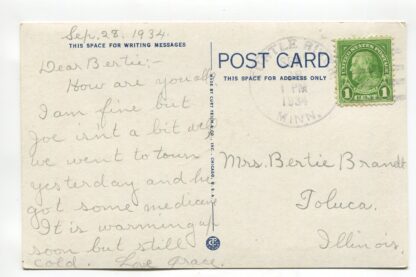 Sep. 28, 1934.
THIS SPACE FOR WRITING MESSAGES
Dear Bertie:-
How are you all
I am fine but
Joe isn't a bit
we went to town
yesterday and he
got some medicine
It is warming up
soon but still
cold. Love Grace.
POST CARD
THIS SPACE FOR ADDRESS ONLY
1 PM
1934
MINN.
UNITED STATES POSTAGE
1 CENT 1
Mrs. Bertie Brandt
Toluca.
Illinois.